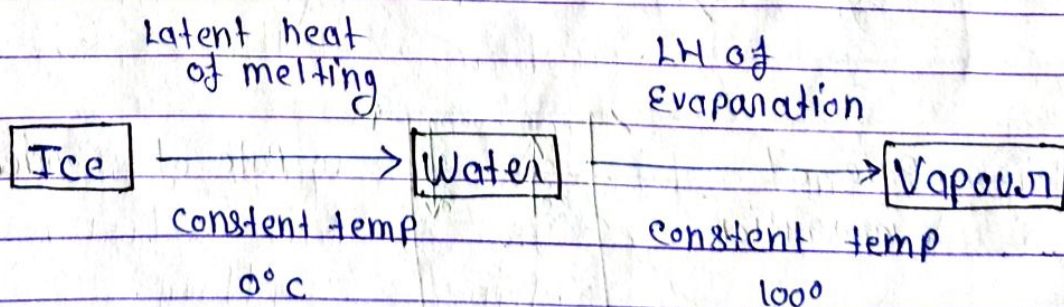 Latent heat
of melting
LH of
Evaparation
Ice
Water
Vapour
constent temp
constent temp
0°C
100°